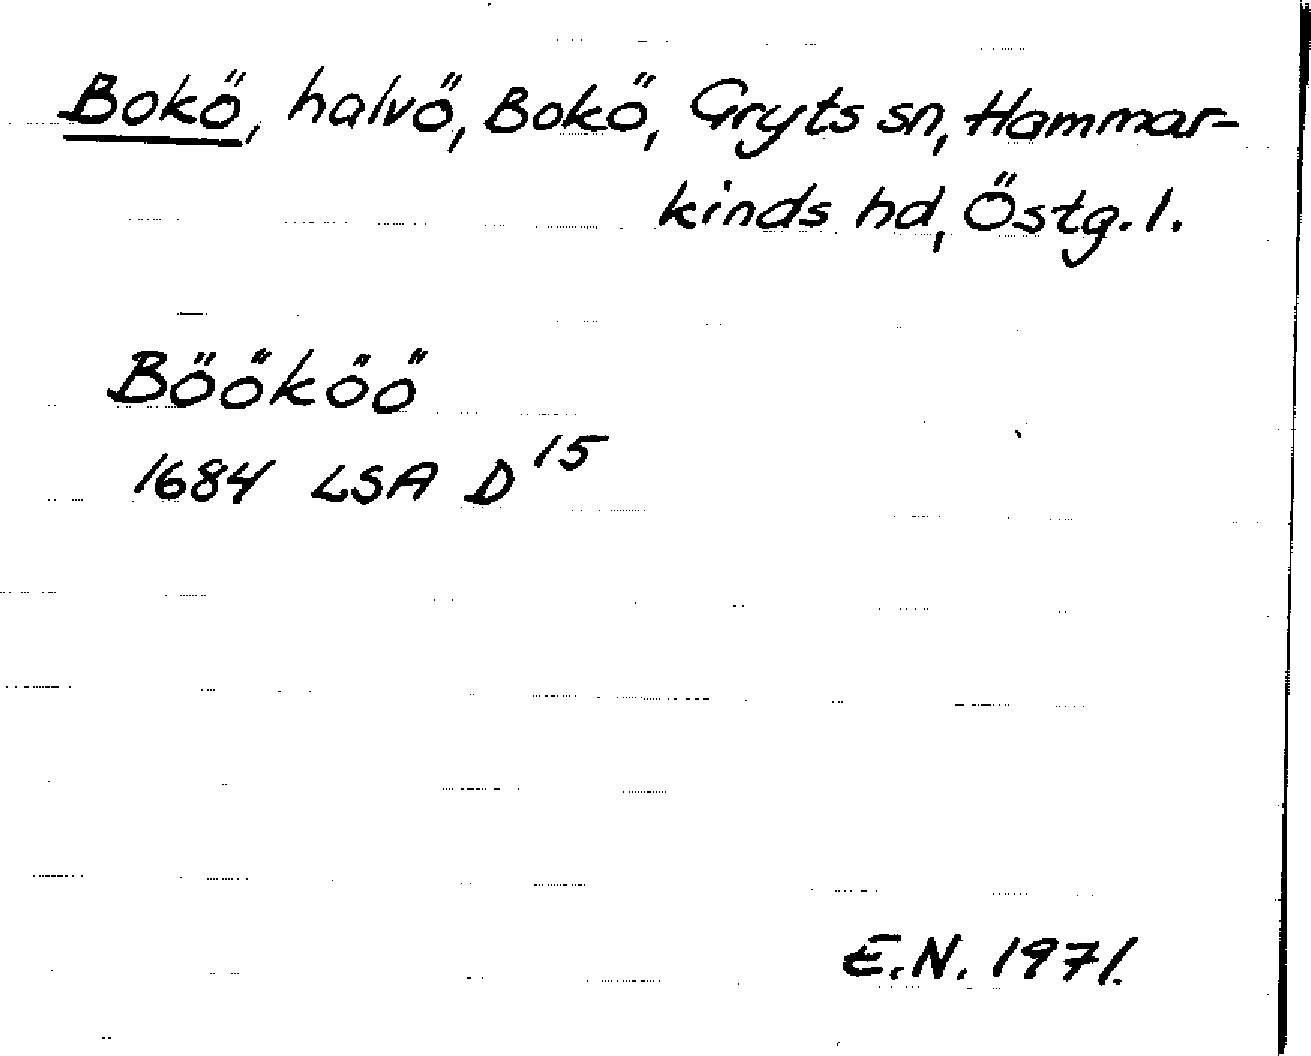 Bokö, halvö, Bokö, Gryts sn, Hammar-
kinds hd, Östg. l.
Böököö
1684 LSA D 15
E.N. 1971.